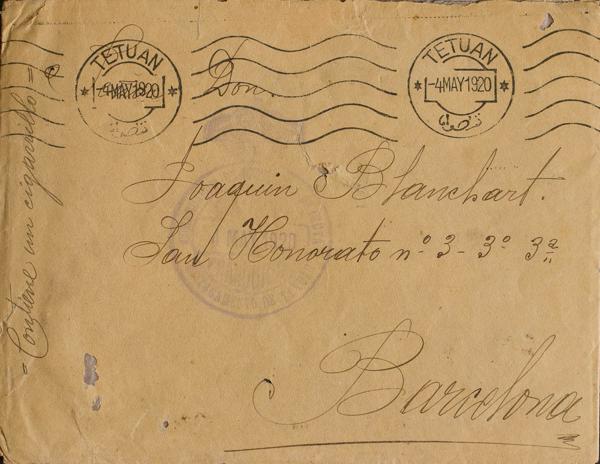 TETUAN
-4 MAY 1920
تطوان
TETUAN
-4 MAY 1920
تطوان
Don.
Joaquin Blanchart.
San Honorato nº 3-3º 3ª
Barcelona
= Contiene un cigarrillo =